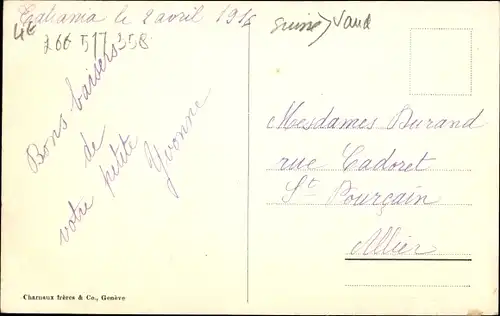 le 2 avril 191
4€
266 517 358
Suisse Vaud
Bons baisers
de
votre petite
Yvonne
Mesdames Durand
rue Cadoret
St Pourçain
Allier
Charnaux frères & Co., Genève